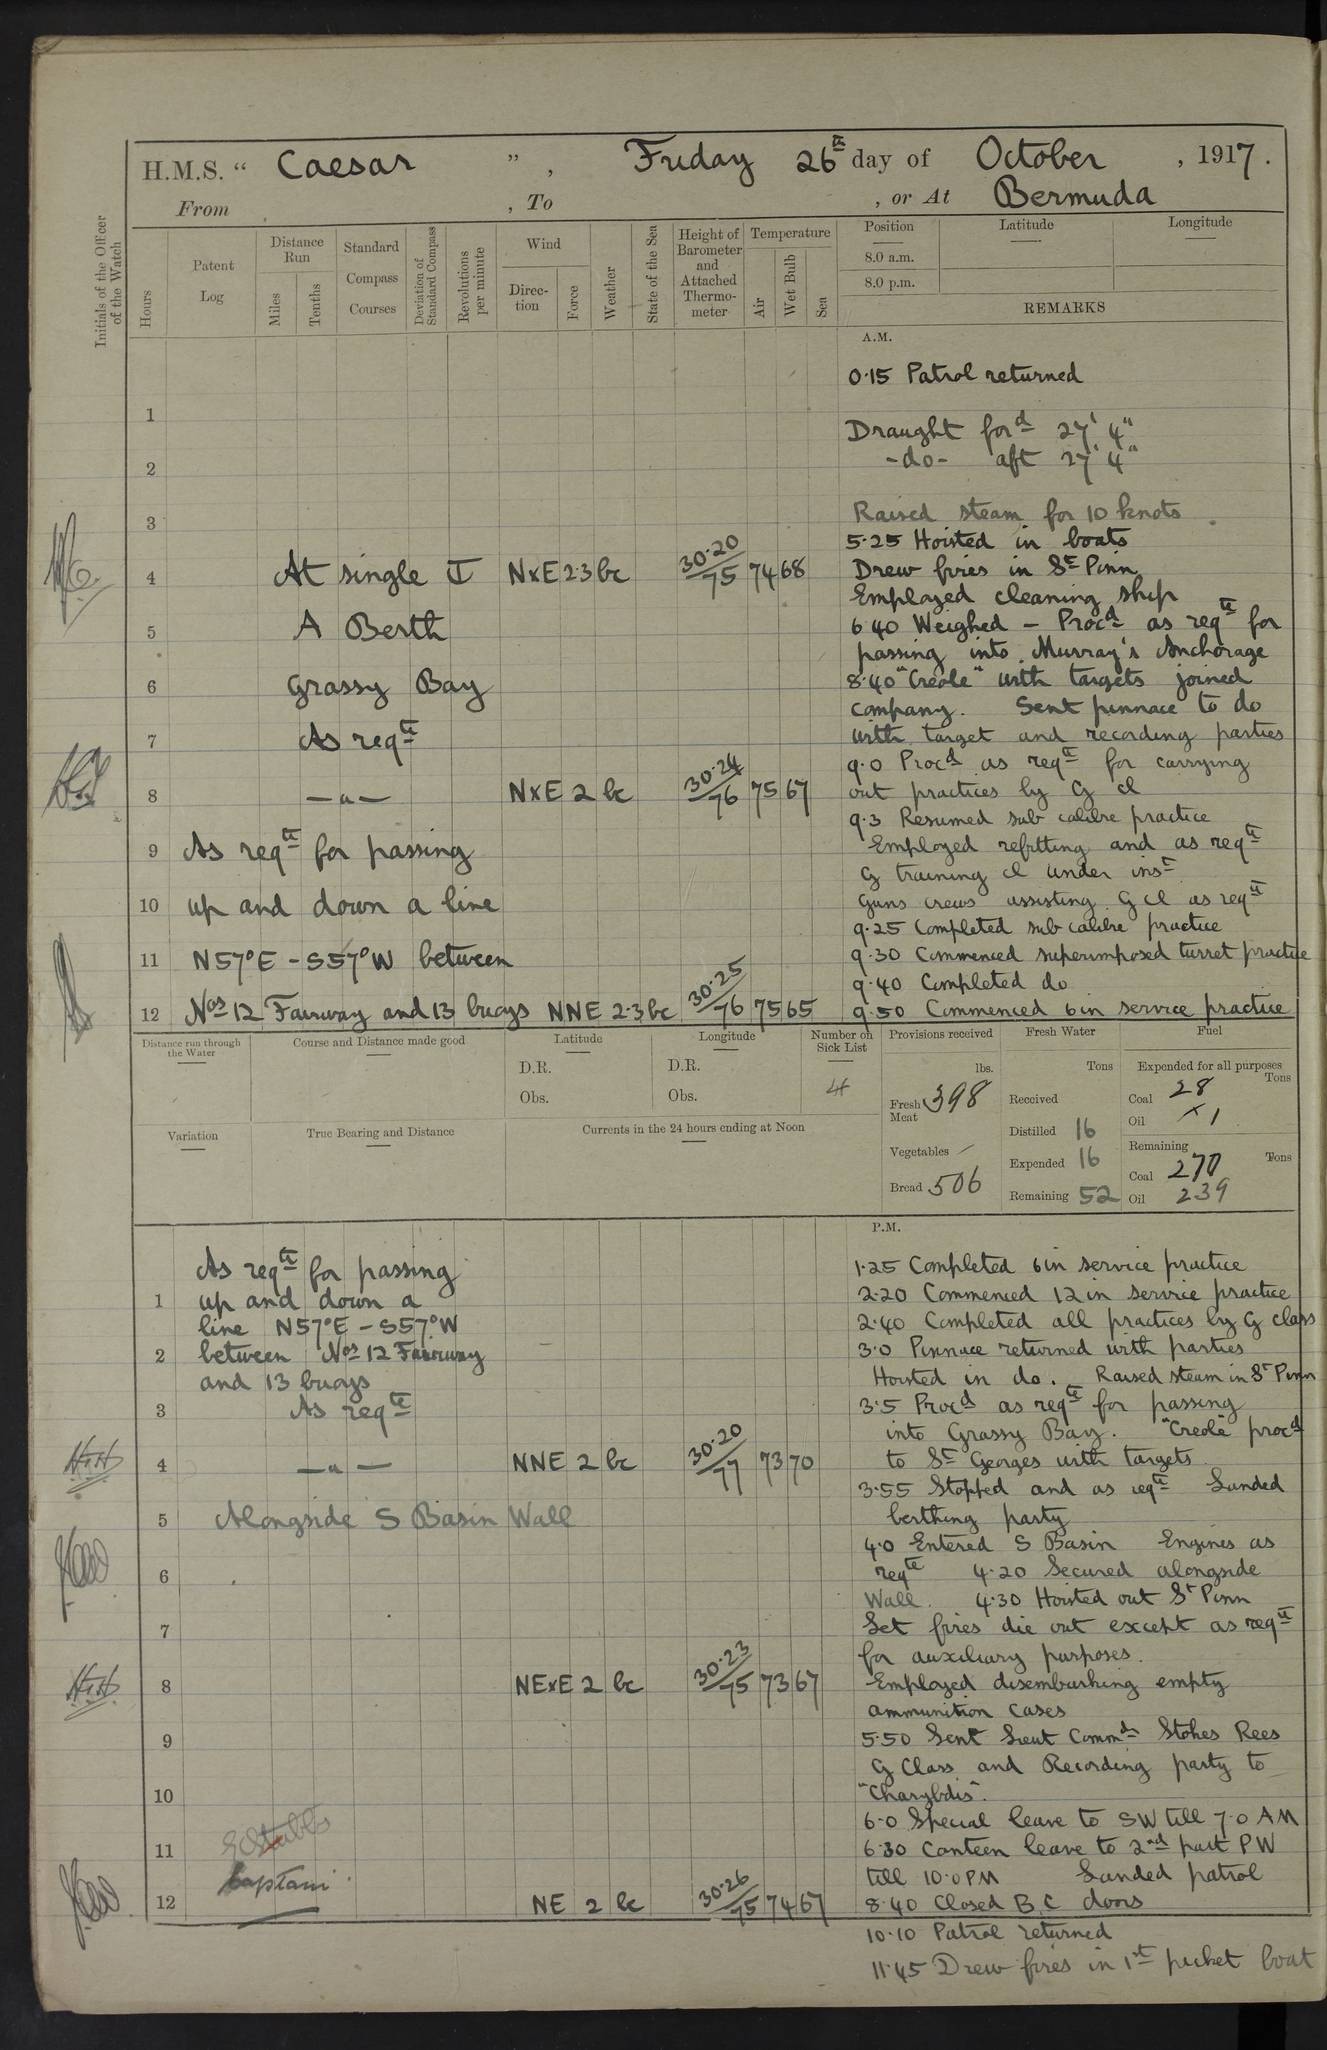 H.M.S. “ Caesar ”, Friday 26th day of October , 1917.
From , To , or At Bermuda
Initials of the Officer of the Watch
Hours
Patent Log
Distance Run
Miles
Tenths
Standard Compass Courses
Deviation of Standard Compass
Revolutions per minute
Wind
Direc-tion
Force
Weather
State of the Sea
Height of Barometer and Attached Thermo-meter
Temperature
Air
Wet Bulb
Sea
Position Latitude Longitude
8.0 a.m.
8.0 p.m.
REMARKS
A.M.
0.15 Patrol returned
1
Draught ford 27' 4"
2 -do- aft 27' 4"
3 Raised steam for 10 knots
5.25 Hoisted in boats
4 At single ⚓ NxE 2.3 bc 30.20/75 74 68 Drew fires in St Pinn
Employed cleaning ship
5 A Berth 6.40 Weighed – Procd as reqte for
passing into Murray's Anchorage
6 Grassy Bay 8.40 "Creole" with targets joined
company. Sent pinnace to do
7 As reqte with target and recording parties
9.0 Procd as reqte for carrying
8 — " — NxE 2 bc 30.24/76 75 67 out practices by G cl
9.3 Resumed sub calibre practice
9 As reqte for passing Employed refitting and as reqte
G training cl under inst
10 up and down a line Guns crews assisting G cl as reqte
9.25 Completed sub calibre practice
11 N57°E - S57°W between 9.30 Commenced superimposed turret practice
9.40 Completed do
12 Nos 12 Fairway and 13 buoys NNE 2.3 bc 30.25/76 75 65 9.50 Commenced 6in service practice
Distance run through the Water
Course and Distance made good
Latitude
D.R.
Obs.
Longitude
D.R.
Obs.
Number on Sick List
4
Provisions received
lbs.
Fresh Meat 398
Vegetables –
Bread 506
Fresh Water
Tons
Received
Distilled 16
Expended 16
Remaining 52
Fuel
Expended for all purposes
Tons
Coal 28
Oil × 1
Remaining
Tons
Coal 270
Oil 239
Variation
True Bearing and Distance
Currents in the 24 hours ending at Noon
P.M.
As reqte for passing 1.25 Completed 6in service practice
1 up and down a 2.20 Commenced 12in service practice
line N57°E - S57°W 2.40 Completed all practices by G class
2 between Nos 12 Fairway 3.0 Pinnace returned with parties
and 13 buoys Hoisted in do. Raised steam in St Pinn
3 As reqte 3.5 Procd as reqte for passing
into Grassy Bay. "Creole" procd
4 — " — NNE 2 bc 30.20/77 73 70 to St Georges with targets
3.55 Stopped and as reqte Landed
5 Alongside S Basin Wall berthing party
4.0 Entered S Basin Engines as
6 reqte 4.20 Secured alongside
Wall. 4.30 Hoisted out St Pinn
7 Let fires die out except as reqte
for auxiliary purposes.
8 NExE 2 bc 30.23/75 73 67 Employed disembarking empty
ammunition cases
9 5.50 Sent Lieut Commdr Stokes Rees
G Class and Recording party to
10 "Charybdis".
6.0 Special leave to SW till 7.0 AM
11 6.30 Canteen leave to 2nd part PW
Captain till 10.0 PM Landed patrol
12 NE 2 bc 30.26/75 74 67 8.40 Closed B.C doors
10.10 Patrol returned
11.45 Drew fires in 1st picket boat